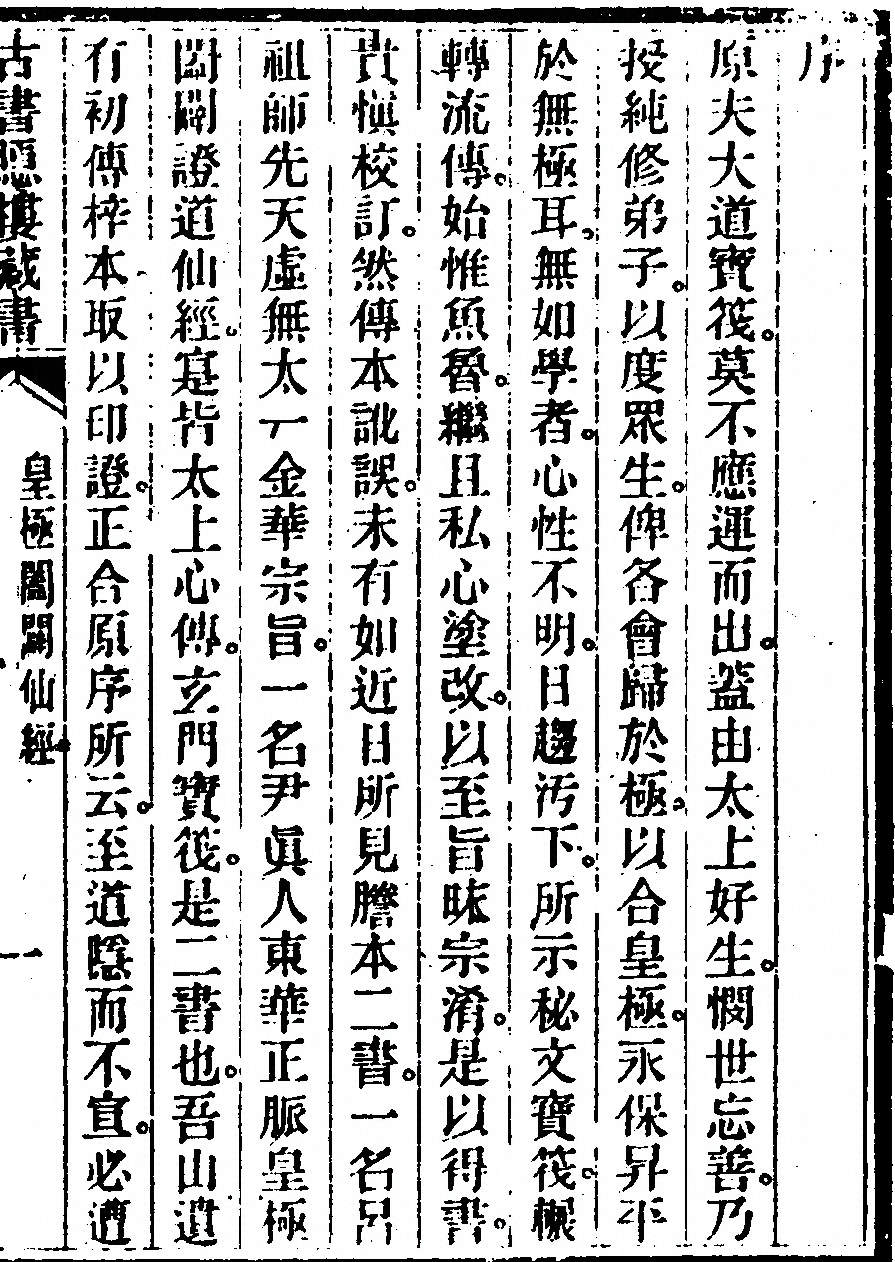 序
原夫大道寶筏莫不應運而出。蓋由太上好生。憫世忘善。乃
授純修弟子。以度眾生。俾各會歸於極。以合皇極。永保昇平
於無極耳。無如學者。心性不明。日趨污下。所示秘文寶筏。輾
轉流傳。始惟魚魯。繼且私心塗改。以至旨昧宗淆。是以得書。
貴慎校訂。然傳本訛誤。未有如近日所見謄本二書。一名呂
祖師先天虛無太一金華宗旨。一名尹眞人東華正脈皇極
闔闢證道仙經。寔皆太上心傳。玄門寶筏。是二書也。吾山遺
有初傳梓本取以印證。正合原序所云。至道隱而不宣。必遭
古書隱樓藏書
皇極闔闢仙經
一